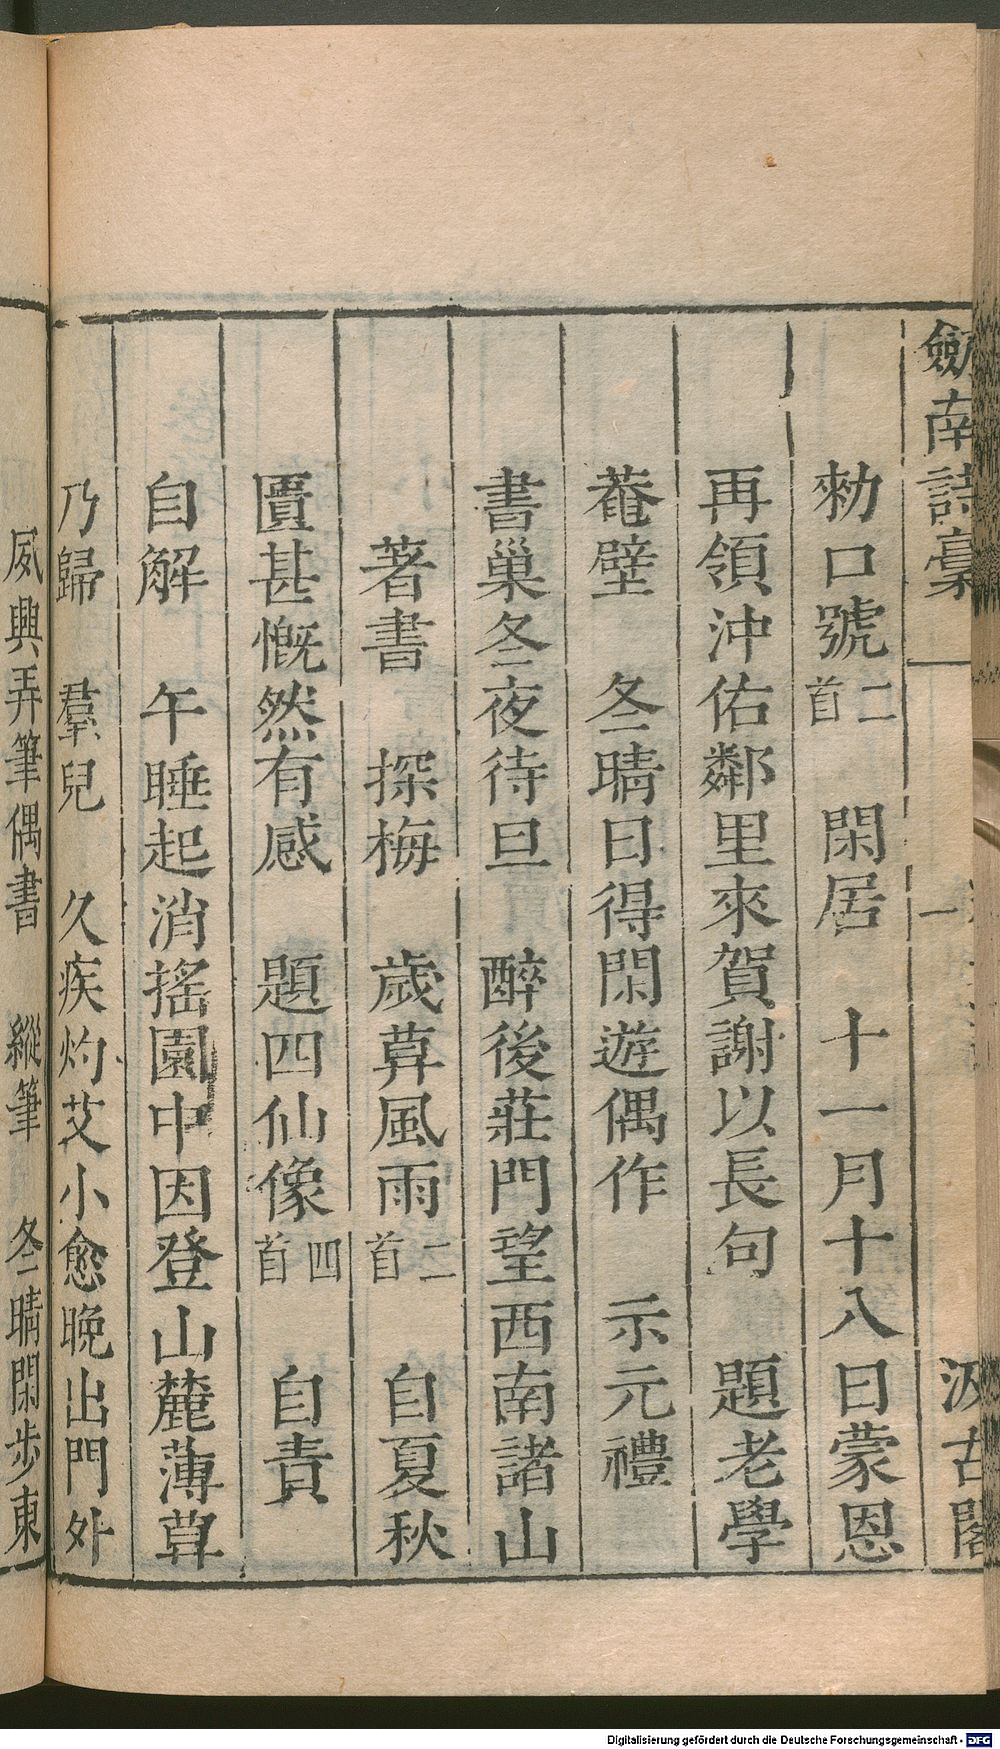 劒南詩藁 一 汲古閣
勑口號二首 閑居 十一月十八日蒙恩
再領沖佑鄰里來賀謝以長句 題老學
菴壁 冬晴日得閑遊偶作 示元禮
書巢冬夜待旦 醉後莊門望西南諸山
著書 探梅 歲暮風雨二首 自夏秋
匱甚慨然有感 題四仙像四首 自責
自解 午睡起消搖園中因登山麓薄暮
乃歸 羣兒 久疾灼艾小愈晚出門外
夙興弄筆偶書 縱筆 冬晴閑步東
Digitalisierung gefördert durch die Deutsche Forschungsgemeinschaft - DFG